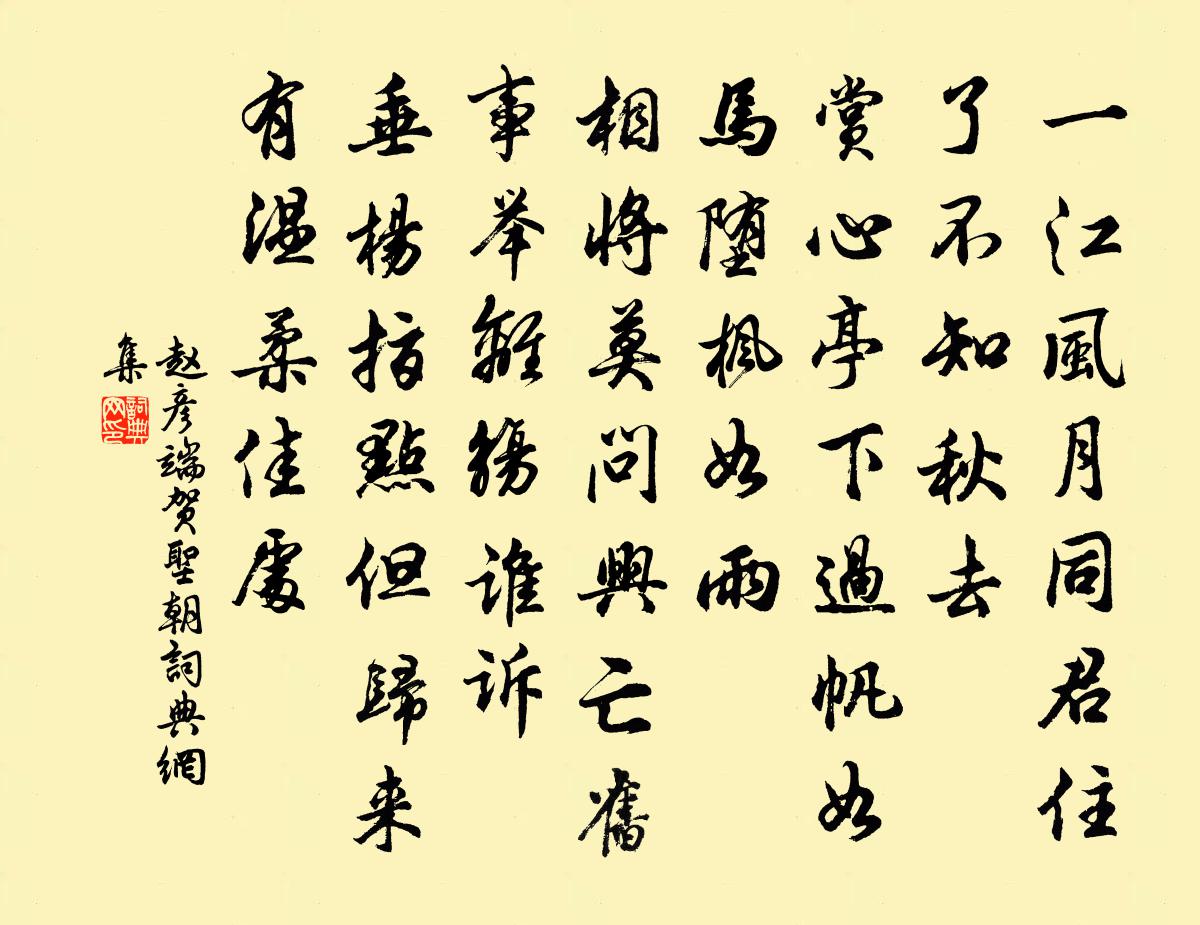 一江風月同君住
了不知秋去
賞心亭下過帆如
馬墮楓如雨
相將莫問興亡舊
事举離觴誰訴
垂楊指點但歸来
有温柔佳處
赵彦端贺聖朝詞典網
集
詞典
网印